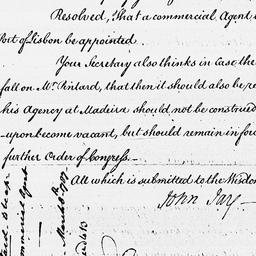 Resolved, That a commercial Agent
Port of Lisbon be appointed.
Your Secretary also thinks in case the
fall on Mr. Pintard, that then it should also be re
his Agency at Madeira should, not be construed
-upon become vacant, but should remain in for
further Order of Congress.—
All which is submitted to the Wisdom
John Jay—